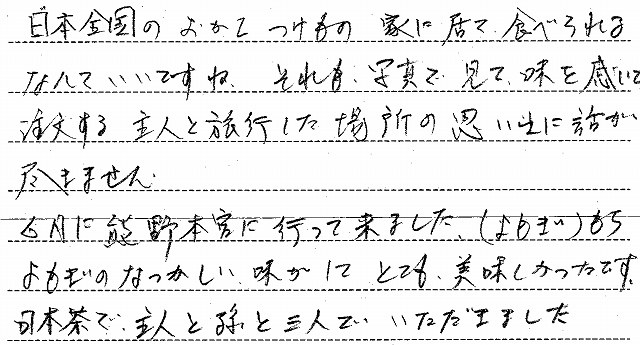 日本全国の おかし つけもの 家に居て 食べられる
なんて いいですね それも、写真で 見て、味を感じて
注文する 主人と旅行した場所の思い出に話が
尽きません。
6月に熊野本宮に行って来ました、(よもぎ)もち
よもぎの なつかしい 味がして とても、美味しかったです。
日本茶で、主人と孫と三人で いただきました